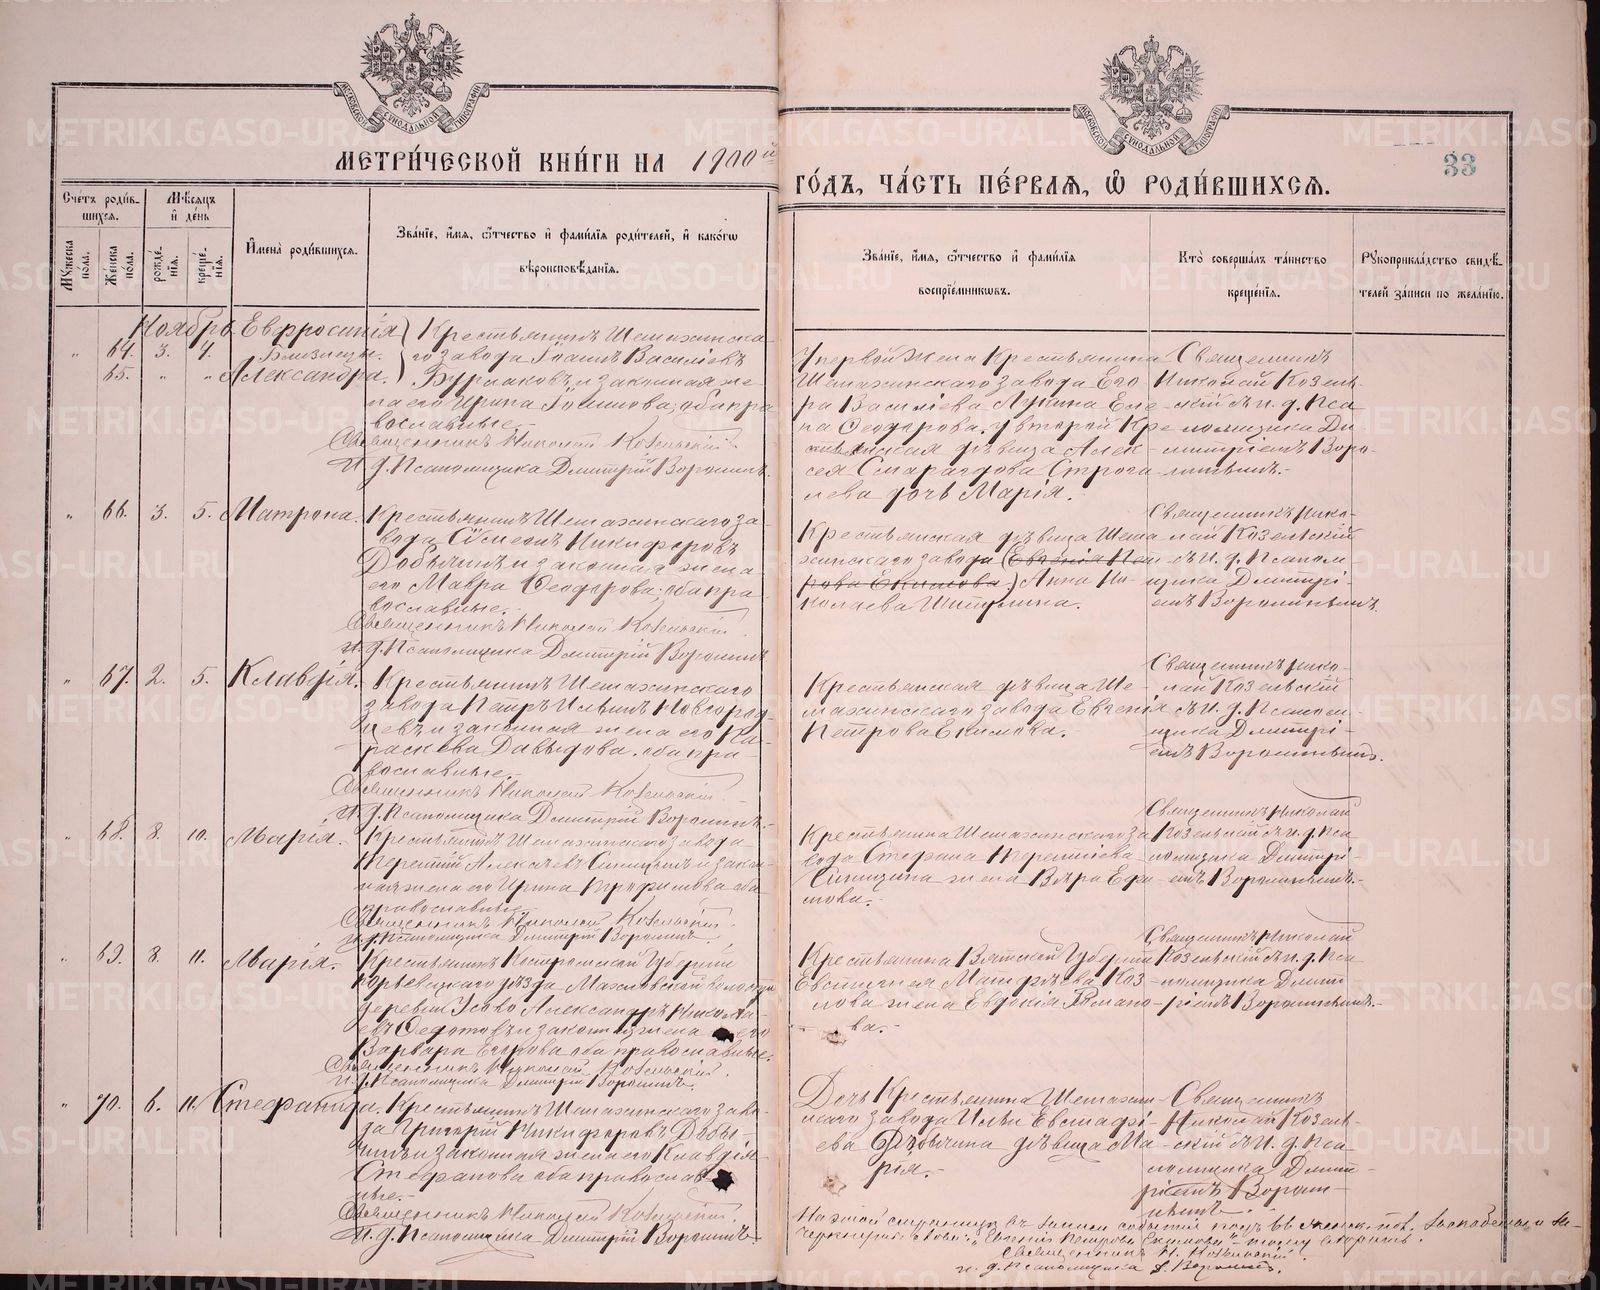 МОСКОВСКОЙ СѴНОДАЛЬНОЙ ТИПОГРАФІИ
МОСКОВСКОЙ СѴНОДАЛЬНОЙ ТИПОГРАФІИ
МЕТРИ́ЧЕСКОЙ КНИ́ГИ НА 1900й
ГО́ДЪ, ЧА́СТЬ ПЕ́РВАЯ, Ѡ РОДИ́ВШИХСЯ.
33
Счетъ роди́в-
шихся.
Мѣсяцъ
и де́нь
Мꙋжеска по́ла.
Же́нска по́ла.
рожде́-
нїя.
креще́-
нїя.
И́мена роди́вшихся.
Зва́нїе, и́мя, ѻ́тчество и фами́лїя роди́телей, и како́гѡ
вѣроисповѣ́данїя.
Зва́нїе, и́мя, ѻ́тчество и фами́лїя
воспрїе́мникѡвъ.
Кто̀ соверша́лъ та́инство
креще́нїя.
Рꙋкоприкла́дство свидѣ́-
телей за́писи по жела́нїю.
Ноябрь
" 64. 3. 4. Евфросинія
Близнецы.
65. " " Александра.
Крестьянинъ Шемахинска-
го завода Іоаннъ Василіевъ
Бурмаковъ и законная же-
на его Ирина Іоаннова, оба пра
вославные.
Священникъ Николай Козельскій.
И. д. Псаломщика Дмитрій Воронинъ.
У первой жена Крестьянина
Шемахинскаго завода Его
ра Василіева Лукина Еле-
на Ѳеодорова, у второй Кре
стьянская дѣвица Алек-
сея Смарагдова Строга-
лева дочь Марія.
Священникъ
Николай Козель-
скій съ и. д. Пса
ломщика Ди
митріемъ Воро-
нинымъ.
" 66. 3. 5. Матрона.
Крестьянинъ Шемахинскаго за-
вода Никифоровъ
Добычинъ и законная жена
его Мавра Ѳеодорова, оба пра
вославные.
Священникъ Николай Козельскій.
И. д. Псаломщика Дмитрій Воронинъ
Крестьянская дѣвица Шема
хинскаго завода (Евгенія Пет
рова Екимова) Анна Ни-
колаева Шитулина.
Священникъ Нико-
лай Козельскій
съ и. д. Псалом
щика Дмитрі-
емъ Воронинымъ.
" 67. 2. 5. Клавдія.
Крестьянинъ Шемахинскаго
завода Павлъ Ильинъ Новгород-
цевъ и законная жена его Па-
раскева Давыдова, оба пра-
вославные.
Священникъ Николай Козельскій.
И. д. Псаломщика Дмитрій Воронинъ.
Крестьянская дѣвица Ше-
махинскаго завода Евгенія
Петрова Екимова.
Священникъ Нико-
лай Козельскій
съ и. д. Псалом-
щика Дмитрі-
емъ Воронинымъ.
" 68. 8. 10. Марія.
Крестьянинъ Шемахинскаго завода
Терентій Алексѣевъ Синицынъ и закон
ная жена его Ирина Трофимова оба
православные.
Священникъ Николай Козельскій.
И. д. Псаломщика Дмитрій Воронинъ.
Крестьянина Шемахинскаго за
вода Стефана Терентіева
Синицына жена Вѣра Ефи
мова.
Священникъ Николай
Козельскій съ и. д. Пса
ломщика Дмитрі-
емъ Воронинымъ.
" 69. 8. 11. Марія.
Крестьянинъ Костромской Губерніи
Юрьевецкаго уѣзда Махловской волости
деревни Александръ Никола-
евъ Ѳедотовъ и законная жена его
Варвара Егорова оба православные.
Священникъ Николай Козельскій.
И. д. Псаломщика Дмитрій Воронинъ.
Крестьянина Вятской Губерніи
Евстигнея Матфѣева Коз-
лова жена Евдокія Романо-
ва.
Священникъ Николай
Козельскій съ и. д. Пса
ломщика Дмит
ріемъ Воронинымъ.
" 70. 6. 11. Стефанида.
Крестьянинъ Шемахинскаго заво-
да Григорій Никифоровъ Добы-
чинъ и законная жена его Клавдія
Стефанова оба православ
ные.
Священникъ Николай Козельскій.
И. д. Псаломщика Дмитрій Воронинъ.
Дочь Крестьянина Шемахин
скаго завода Ильи Евстафі-
ева Добычина дѣвица Ма-
рія.
Священникъ
Николай Козель-
скій съ и. д. Пса
ломщика Дмит-
ріемъ Ворони-
нымъ.
На этой страницѣ въ записи событій подъ 66 женск. пол.
зачеркнутымъ словамъ: "Евгенія Петрова Екимова"
Священникъ Н. Козельскій
и. д. Псаломщика Д. Воронинъ.
METRIKI.GASO-URAL.RU